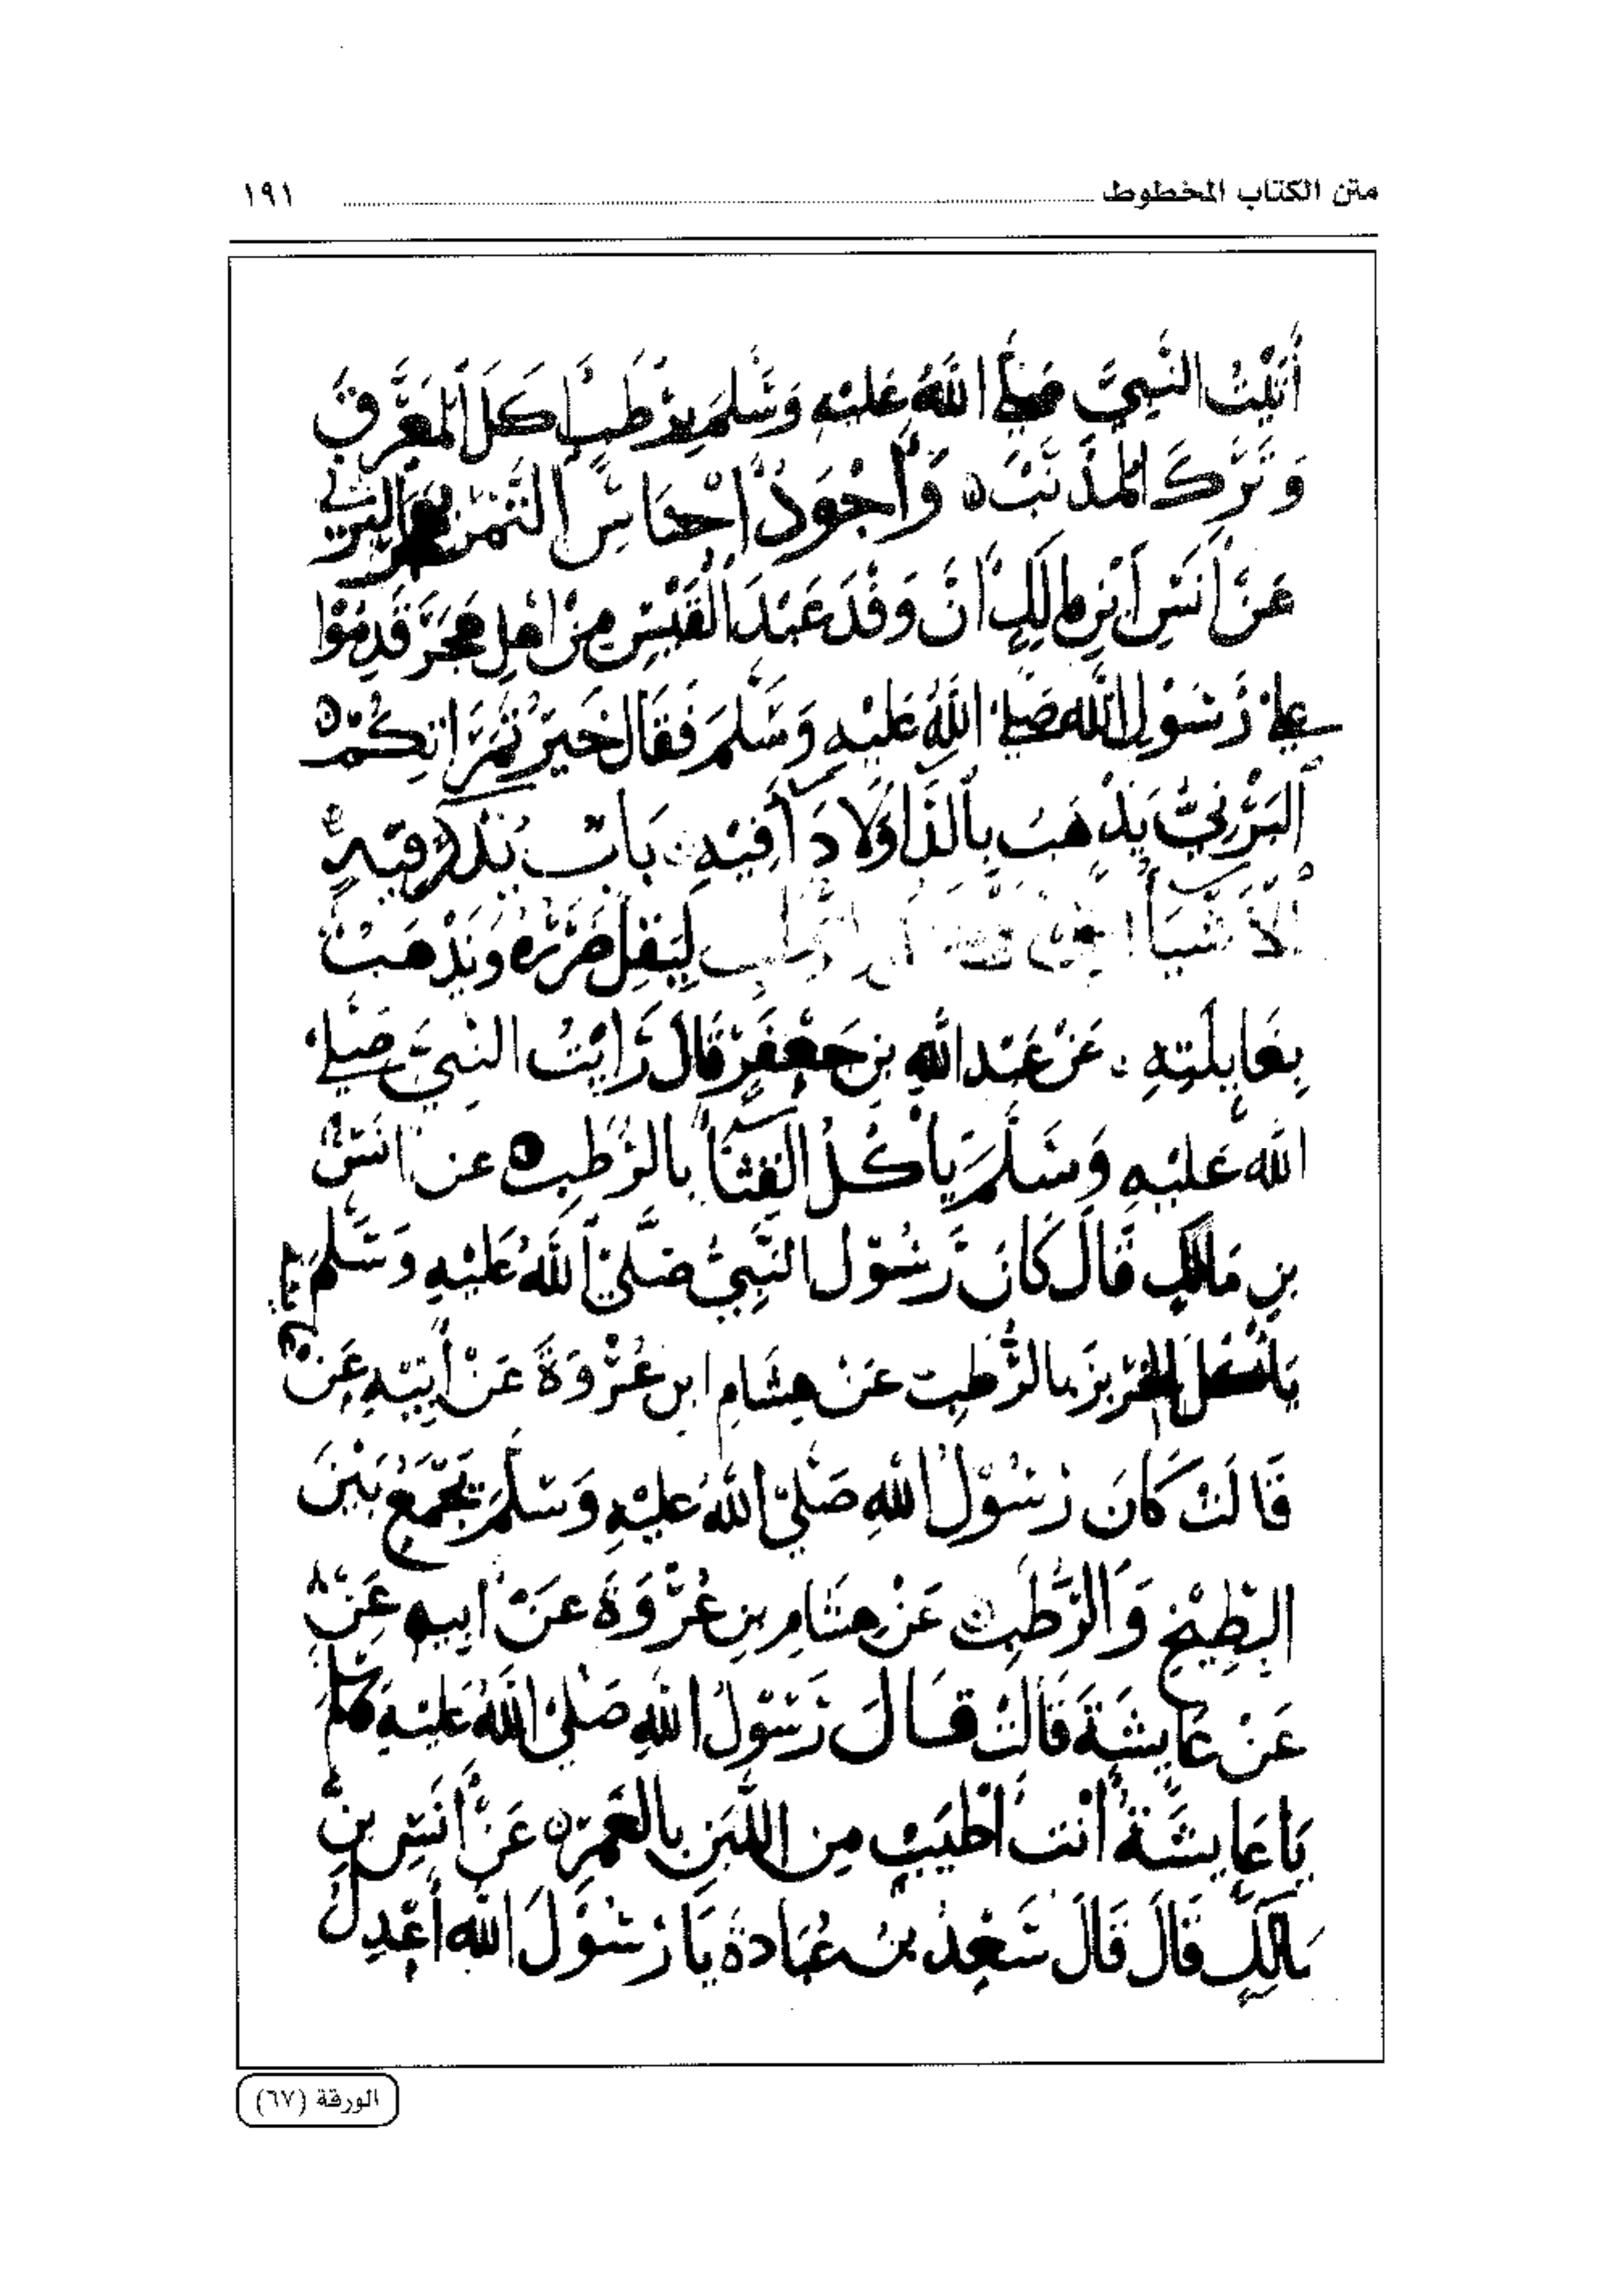 متن الكتاب المخطوط ١٩١
أَتَيْتُ النَّبِيَّ صَلَّى اللَّهُ عَلَيْهِ وَسَلَّمَ بِرُطَبٍ
وَتَرَكَ المُذَنِّبَ ٥ وَأَجْوَدُ أَجْنَاسِ التَّمْرِ البرني
عَنْ أَنَسِ ابْنِ مَالِكٍ أَنَّ وَفْدَ عَبْدَ الْقَيْسِ مِنْ أَهْلِ هَجَرَ قَدِمُوا
عَلَى رَسُولِ اللَّهِ صَلَّى اللَّهُ عَلَيْهِ وَسَلَّمَ فَقَالَ خَيْرُ تَمَرَاتِكُمْ ٥
الْبَرْنِيُّ يَذْهَبُ بِالدَّاءِ وَلَا دَاءَ فِيهِ بَابٌ نَذْكُرُ فِيهِ
لِيَقِلَّ ضَرَرُهُ وَنَذْهَبُ
بِغَايِلَتِهِ . عَنْ عَبْدِ اللَّهِ بْنِ جَعْفَرٍ قَالَ رَأَيْتُ النَّبِيَّ صَلَّى
اللَّهُ عَلَيْهِ وَسَلَّمَ يَأْكُلُ القِثَّاءَ بِالرُّطَبِ ٥ عن أَنَسِ
بْنِ مَالِكٍ قَالَ كَانَ رَسُوْلُ النَّبِيُّ صَلَّى اللَّهُ عَلَيْهِ وَسَلَّمَ
الْخِرْبِزَ بِالرُّطَبِ عَنْ هِشَامِ ابْنِ عُرْوَةَ عَنْ أَبِيْهِ عَنْ
قَالَتْ كَانَ رَسُوْلُ اللَّهِ صَلَّى اللَّهُ عَلَيْهِ وَسَلَّمَ يَجْمَعُ بَيْنَ
البِطِّيْخِ وَالرُّطَبِ ٥ عَنْ هِشَامِ بْنِ عُرْوَةَ عَنْ أَبِيهِ عَنْ
عَنْ عَايِشَةَ قَالَتْ قَالَ رَسُوْلُ اللَّهِ صَلَّى اللَّهُ عَلَيْهِ وَسَلَّمَ
يَا عَايِشَةُ أَنْتِ أَطْيَبُ مِنَ اللَّبَنِ بِالتَّمْرِ ٥ عَنْ أَنَسِ بْنِ
مَالِكٍ قَالَ قَالَ سَعْدُ بْنُ عُبَادَةَ يَا رَسُوْلَ اللَّهِ أَعْدِلْ
الورقة (٦٧)